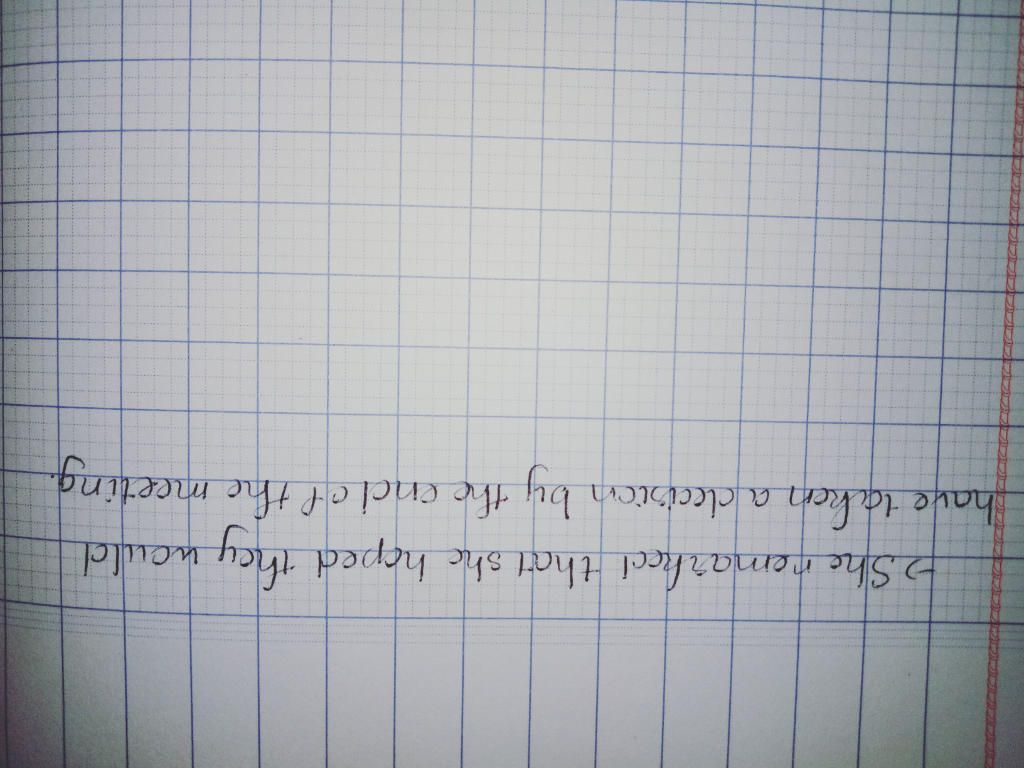 → She remarked that she hoped they would
have taken a decision by the end of the meeting.